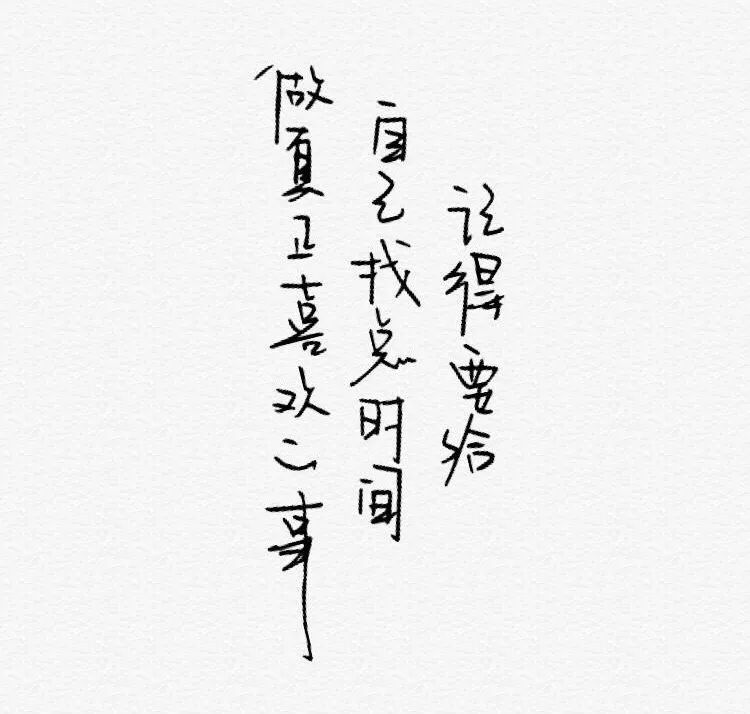 记得要给
自己找点时间
做真正喜欢之事